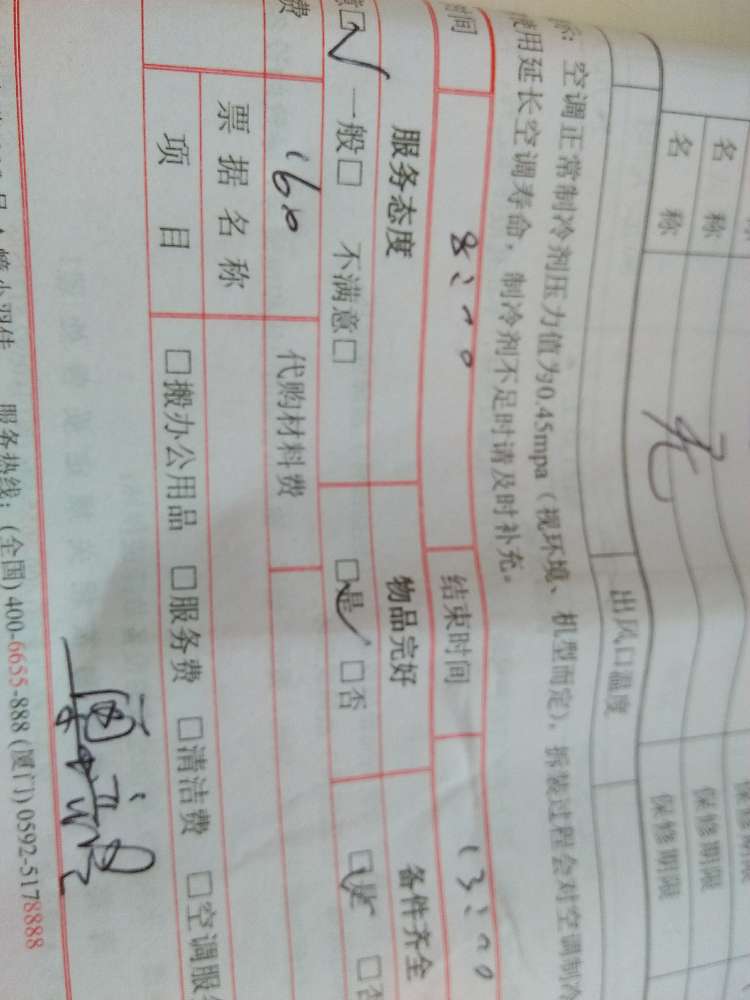 名 称
保修期限
名 称
保修期限
出风口温度
无
示: 空调正常制冷剂压力值为0.45mpa (视环境、机型而定), 拆装过程会对空调制冷
使用延长空调寿命, 制冷剂不足时请及时补充。
时间 8:00 结束时间 13:00
服务态度 物品完好 备件齐全
☑ 一般□ 不满意□ □是 □否 □是 □否
费 160 代购材料费
票据名称
项 目 □搬办公用品 □服务费 □清洁费 □空调服务
服务热线: (全国) 400-6655-888 (厦门) 0592-5178888